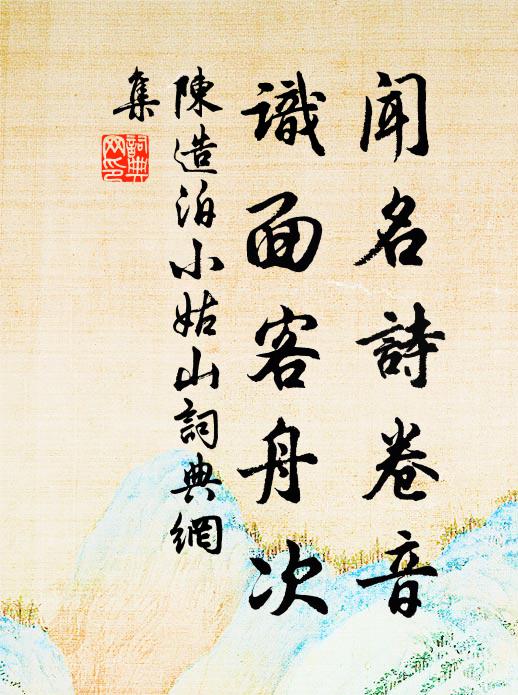 聞名詩卷音
識面客舟次
陳造泊小姑山詞典網
集
詞典
网印